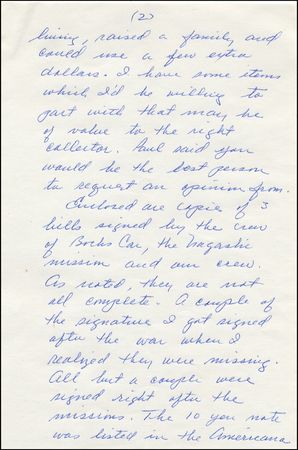 (2)
living, raised a family, and
could use a few extra
dollars. I have some items
which I'd be willing to
part with that may be
of value to the right
collector. Paul said you
would be the best person
to request an opinion from.
Enclosed are copies of 3
bills signed by the crew
of Bocks Car, the Nagasaki
mission and our crew.
As noted, they are not
all complete. A couple of
the signature I got signed
after the war when I
realized they were missing.
All but a couple were
signed right after the
missions. The 10 yen note
was listed in the Americana